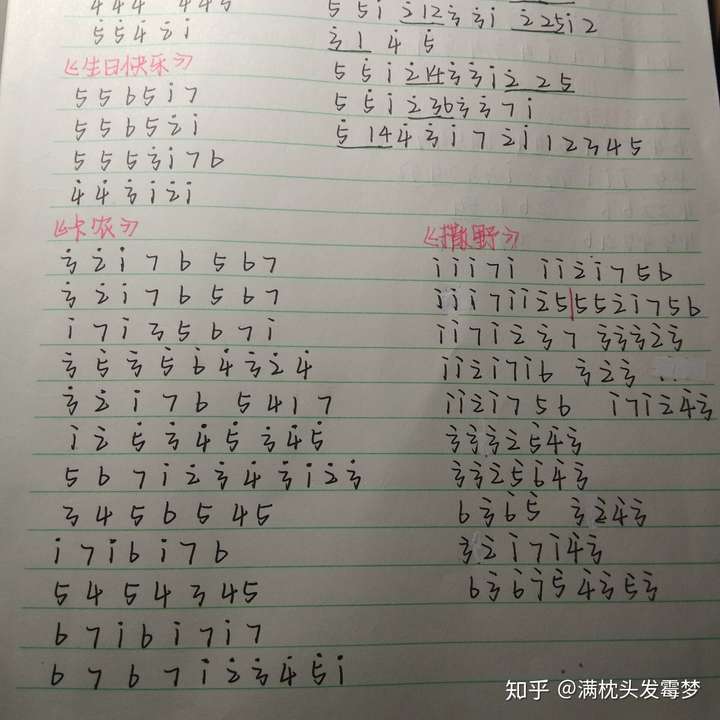 4 4 4 4 4 5
5̇ 5̇ 4̇ 2̇ i̇
《生日快乐》
5 5 6 5 i̇ 7
5 5 6 5 2̇ i̇
5 5 5̇ 3̇ i̇ 7 6
4̇ 4̇ 3̇ i̇ 2̇ i̇
《卡农》
3̇ 2̇ i̇ 7 6 5 6 7
3̇ 2̇ i̇ 7 6 5 6 7
i̇ 7 i̇ 3 5 6 7 i̇
3̇ 5̇ 3̇ 5̇ 6̇ 4̇ 3̇ 2̇ 4̇
3̇ 2̇ i̇ 7 6 5 4 1 7
i̇ 2̇ 5̇ 3̇ 4̇ 5̇ 3̇ 4̇ 5̇
5 6 7 i̇ 2̇ 3̇ 4̇ 3̇ i̇ 2̇ 3̇
3 4 5 6 5 4 5
i̇ 7 i̇ 6 i̇ 7 6
5 4 5 4 3 4 5
6 7 i̇ 6 i̇ 7 i̇ 7
6 7 6 7 i̇ 2̇ 3̇ 4̇ 5̇ i̇
5 5 i̇ 2̇ 1 2 3̇ 3̇ i̇ 2̇ 2 5 i̇ 2
3̇ 1 4̇ 5̇
5 5 i̇ 2̇ 1 4 3̇ 3̇ i̇ 2̇ 2 5
5 5 i̇ 2̇ 3 6 3̇ 3̇ 7 i̇
5̇ 1 4 4̇ 3̇ i̇ 7 2̇ i̇ 1 2 3 4 5
《撒野》
i̇ i̇ i̇ 7 i̇ i̇ i̇ 2̇ i̇ 7 5 6
i̇ i̇ i̇ 7 i̇ i̇ 2̇ 5 | 5 5 2̇ i̇ 7 5 6
i̇ i̇ 7 i̇ 2̇ 3̇ 7 3̇ 3̇ 3̇ 2̇ 3̇
i̇ i̇ 2̇ i̇ 7 i̇ 6 3̇ 2̇ 3̇
i̇ i̇ 2̇ i̇ 7 5 6 i̇ 7 i̇ 2̇ 4̇ 3̇
3̇ 3̇ 3̇ 2̇ 5̇ 4̇ 3̇
3̇ 3̇ 2̇ 5̇ 6̇ 4̇ 3̇
6 3̇ 6̇ 5̇ 3̇ 2̇ 4̇ 3̇
3̇ 2̇ i̇ 7 i̇ 4̇ 3̇
6 3̇ 6̇ 7̇ 5̇ 4̇ 3̇ 5̇ 3̇
知乎 @满枕头发霉梦